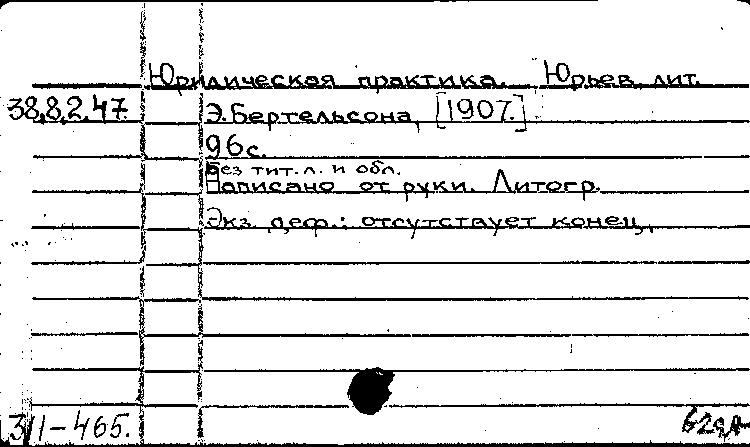 Юридическая практика. Юрьев, лит.
38.8.2.47. Э.Бертельсона, [1907.]
96с.
Без тит.л. и обл.
Написано от руки. Литогр.
Экз. деф.: отсутствует конец.
311-465.